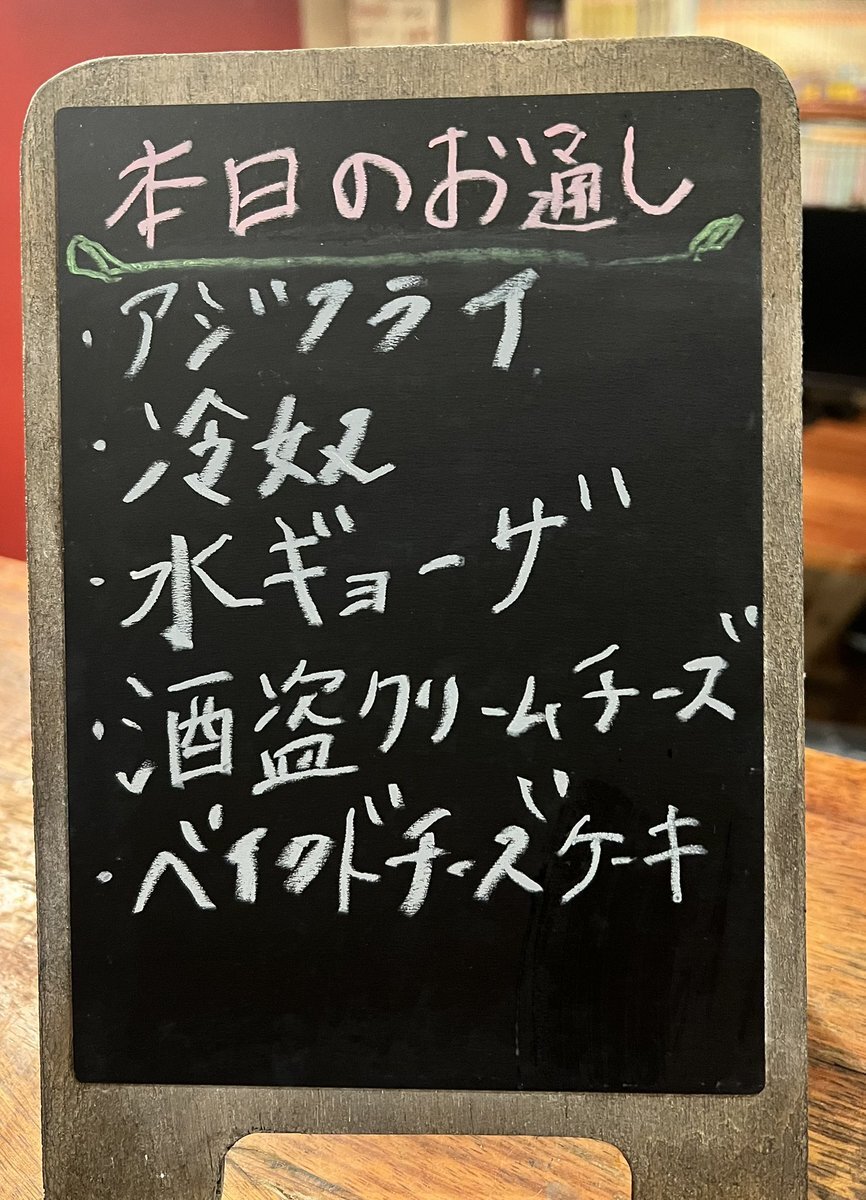 本日のお通し
・アジフライ
・冷奴
・水ギョーザ
・酒盗クリームチーズ
・ベイクドチーズケーキ